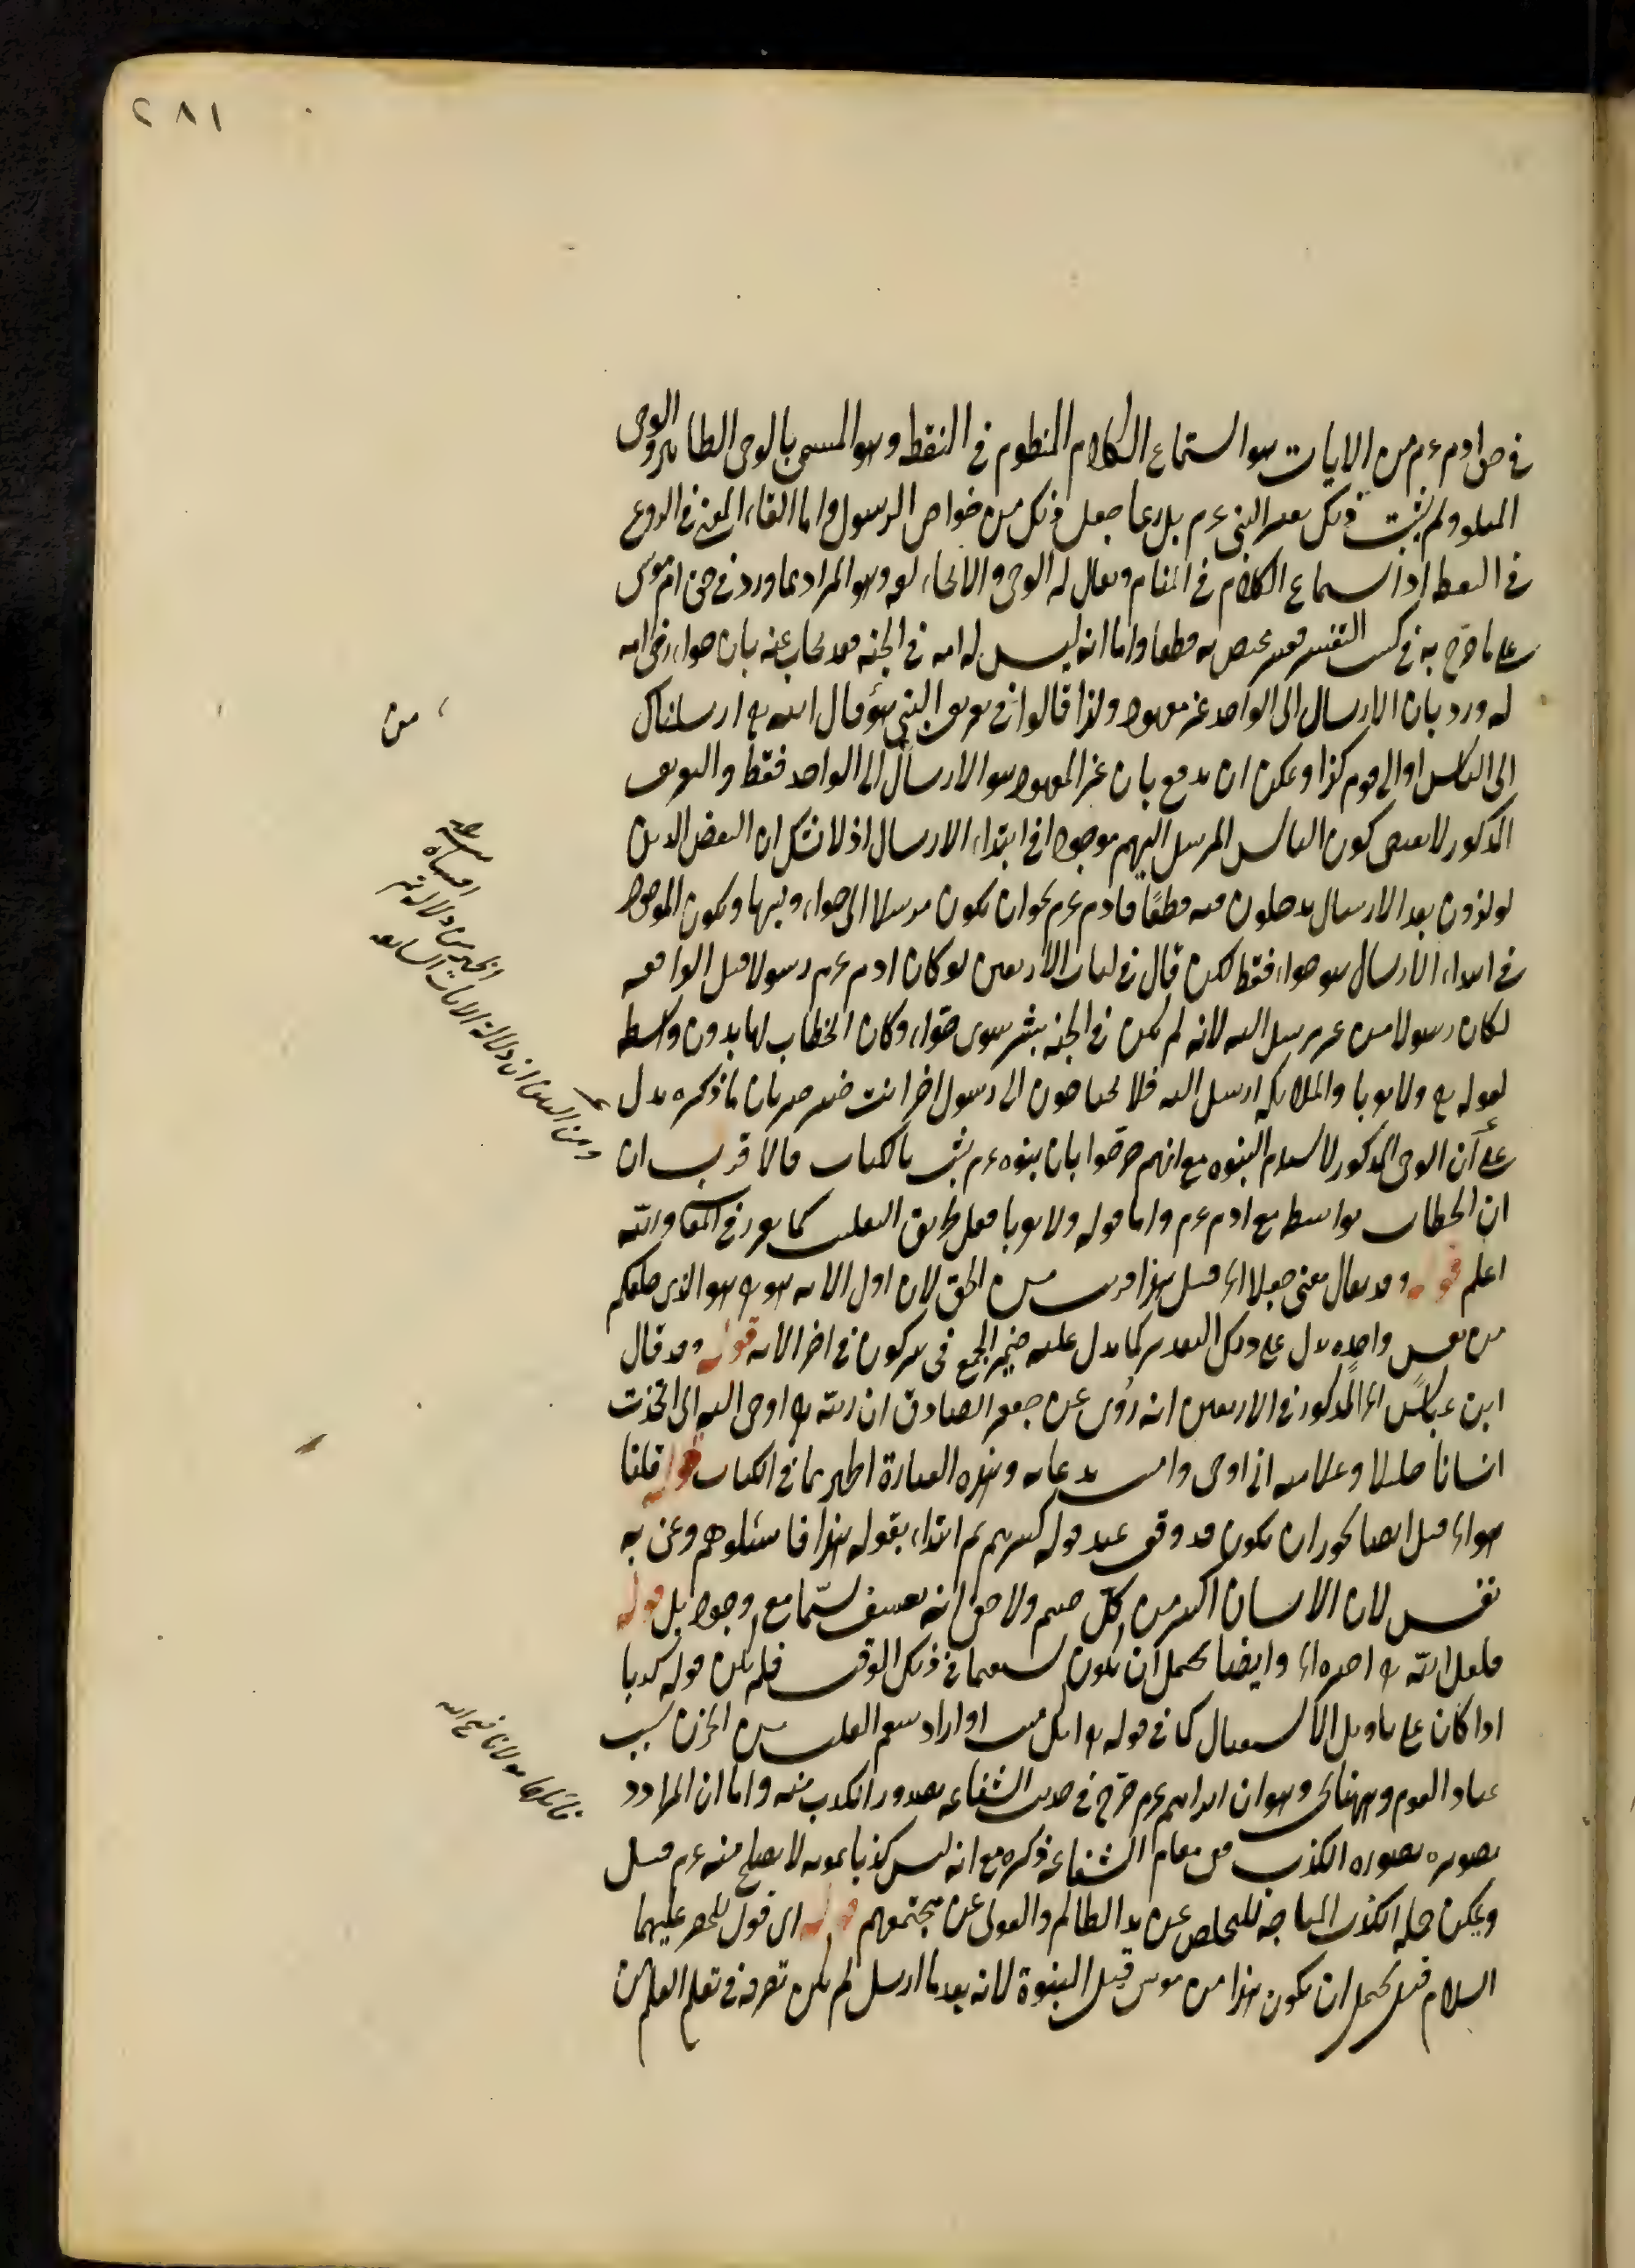 ٢٨١
في حق ادم ءم من الايات هو استماع الكلام المنظوم في اليقظة وهو المسمى بالوحى الظاهر والوحى
المتلو ولم يثبت ذلك لغير النبى ءم بل ربما جعل ذلك من خواص الرسول واما القاء المعنى فى الروع
فى اليقظة او اسماع الكلام فى المنام ويقال له الوحى والايحاء لغة وهو المراد بما ورد فى حق ام موسى
على ما صرح به فى كتب التفسير فغير مختص به قطعا واما انه ليس له امة فى الجنة فقد يجاب عنه بان حواء رضى الله
له ورد بان الارسال الى الواحد غير معهود ولذا قالوا فى تعريف النبى هو من قال الله تع ارسلناك
الى الناس او الى قوم كذا ويمكن ان يدفع بان غير المعهود هو الارسال الى الواحد فقط والتعريف
المذكور لا يقتضى كون الناس المرسل اليهم موجودا فى ابتداء الارسال اذ لا شك ان البعض الذين
يولدون بعد الارسال يدخلون فيه قطعا فادم ءم يجوز ان يكون مرسلا الى حواء وبنيها ويكون الموجود
فى ابتداء الارسال هو حواء فقط لكن قال فى لباب الاربعين لو كان ادم ءم رسولا قبل الواقعة
لكان رسولا من غير مرسل اليه لانه لم يكن فى الجنة بشر سوى حواء وكان الخطاب لها بدون واسطة
لقوله تع ولا تقربا والملائكة ارسل الله فلا يحتاجون الى رسول اخر انت خبير بان ما ذكره يدل
على ان الوحى المذكور لا يستلزم النبوة مع انهم صرحوا بان نبوة ءم يثبت بالكتاب فالاقرب ان
ان الخطاب بواسطة مع ادم ءم واما قوله ولا تقربا فعلى طريق التغليب كما تقرر فى المعا والله
اعلم قوله وقد يقال معنى جعلا اه قيل هذا قريب من الحق لان اول الاية هو تع هو الذى خلقكم
من نفس واحدة يدل على ذلك التقدير كما يدل عليه ضمير الجمع فى يشركون فى اخر الاية قوله وقد قال
ابن عباس اه المذكور فى الاربعين انه روى عن جعفر الصادق ان الله تع اوحى اليه انى اتخذت
انسانا خليلا وعلامته انى احيى واميت بدعائه وهذه العبارة اظهر مما فى الكتاب قوله قلنا
هو اه قيل ايضا يجوز ان يكون قد وقف عند قوله كبيرهم ثم ابتداء بقوله هذا فاسئلوهم وعنى به
نفسه لان الانسان اكبر من كل صنم ولا يخفى انه تعسف سيما مع وجود بل قوله
فلعل الله تع اخبره اه وايضا يحتمل ان يكون سقيما فى ذلك الوقت فلم يكن قوله كذبا
او اكان على تاويل الاستقبال كما فى قوله تع انك ميت او اراد سقم القلب من الحزن بسبب
عناد القوم وههنا شى وهو ان ابراهيم ءم صرح فى حديث الشفاعة بصدور الكذب منه واما ان المراد
بصوره بصورة الكذب ففى مقام الشفاعة ذكره مع انه ليس كذبا عمدا لا يصلح منه ءم قيل
ويمكن حمله الكذب المباح للتخلص عن يد الظالم والتولى عن مجتمعهم قوله اى قول الخضر عليهما
السلام قيل يحتمل ان يكون هذا من موسى قبل النبوة لانه بعد ما ارسل لم يكن تصرفه فى تعلم العلم من
من
ومن البين ان دلالة الايات السابقة
اظهر من دلالة
قائلها مولانا فتح الله